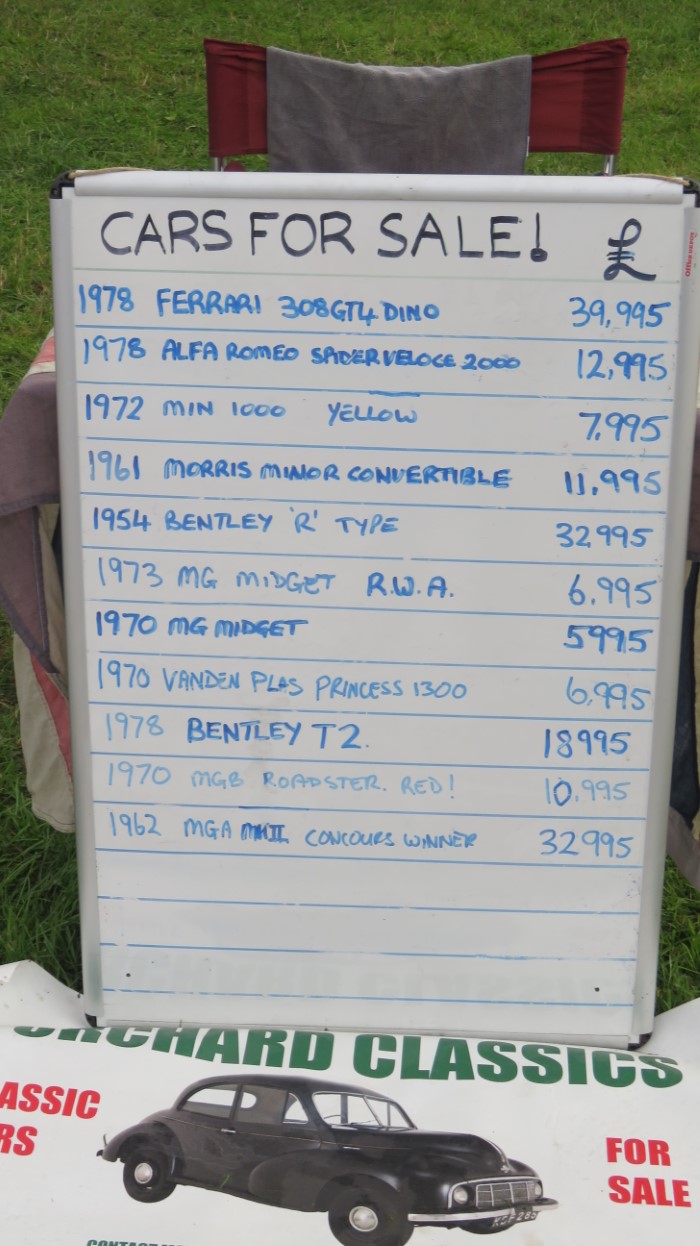 CARS FOR SALE! £
1978 FERRARI 308GT4 DINO 39,995
1978 ALFA ROMEO SPIDER VELOCE 2000 12,995
1972 MIN 1000 YELLOW 7.995
1961 MORRIS MINOR CONVERTIBLE 11.995
1954 BENTLEY 'R' TYPE 32995
1973 MG MIDGET R.W.A. 6.995
1970 MG MIDGET 5995
1970 VANDEN PLAS PRINCESS 1300 6,995
1978 BENTLEY T2. 18995
1970 MGB ROADSTER. RED! 10.995
1962 MGA MKII CONCOURS WINNER 32995
ORCHARD CLASSICS
ASSIC
RS
FOR
SALE